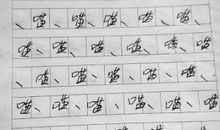 、喵、喵、喵、喵、喵、
喵、喵、喵、喵、喵、喵
、喵、喵、喵、喵、喵、
喵、喵、喵、喵、喵、喵